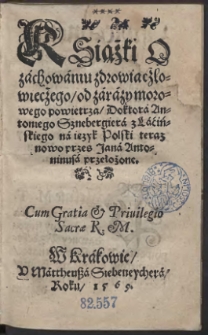 KSiążki O
záchowániu zdrowia czło-
wieczego / od zárázy moro-
wego powietrza / Doktorá An-
toniego Sznebergierá z Láciń-
skiego ná ięzyk Polski teraz
nowo przez Janá Anto-
ninusá przełożone.
Cum Gratia & Priuilegio
Sacræ R. M.
W Krákowie /
V Máttheuszá Siebeneycherá /
Roku / 1569.
82.557